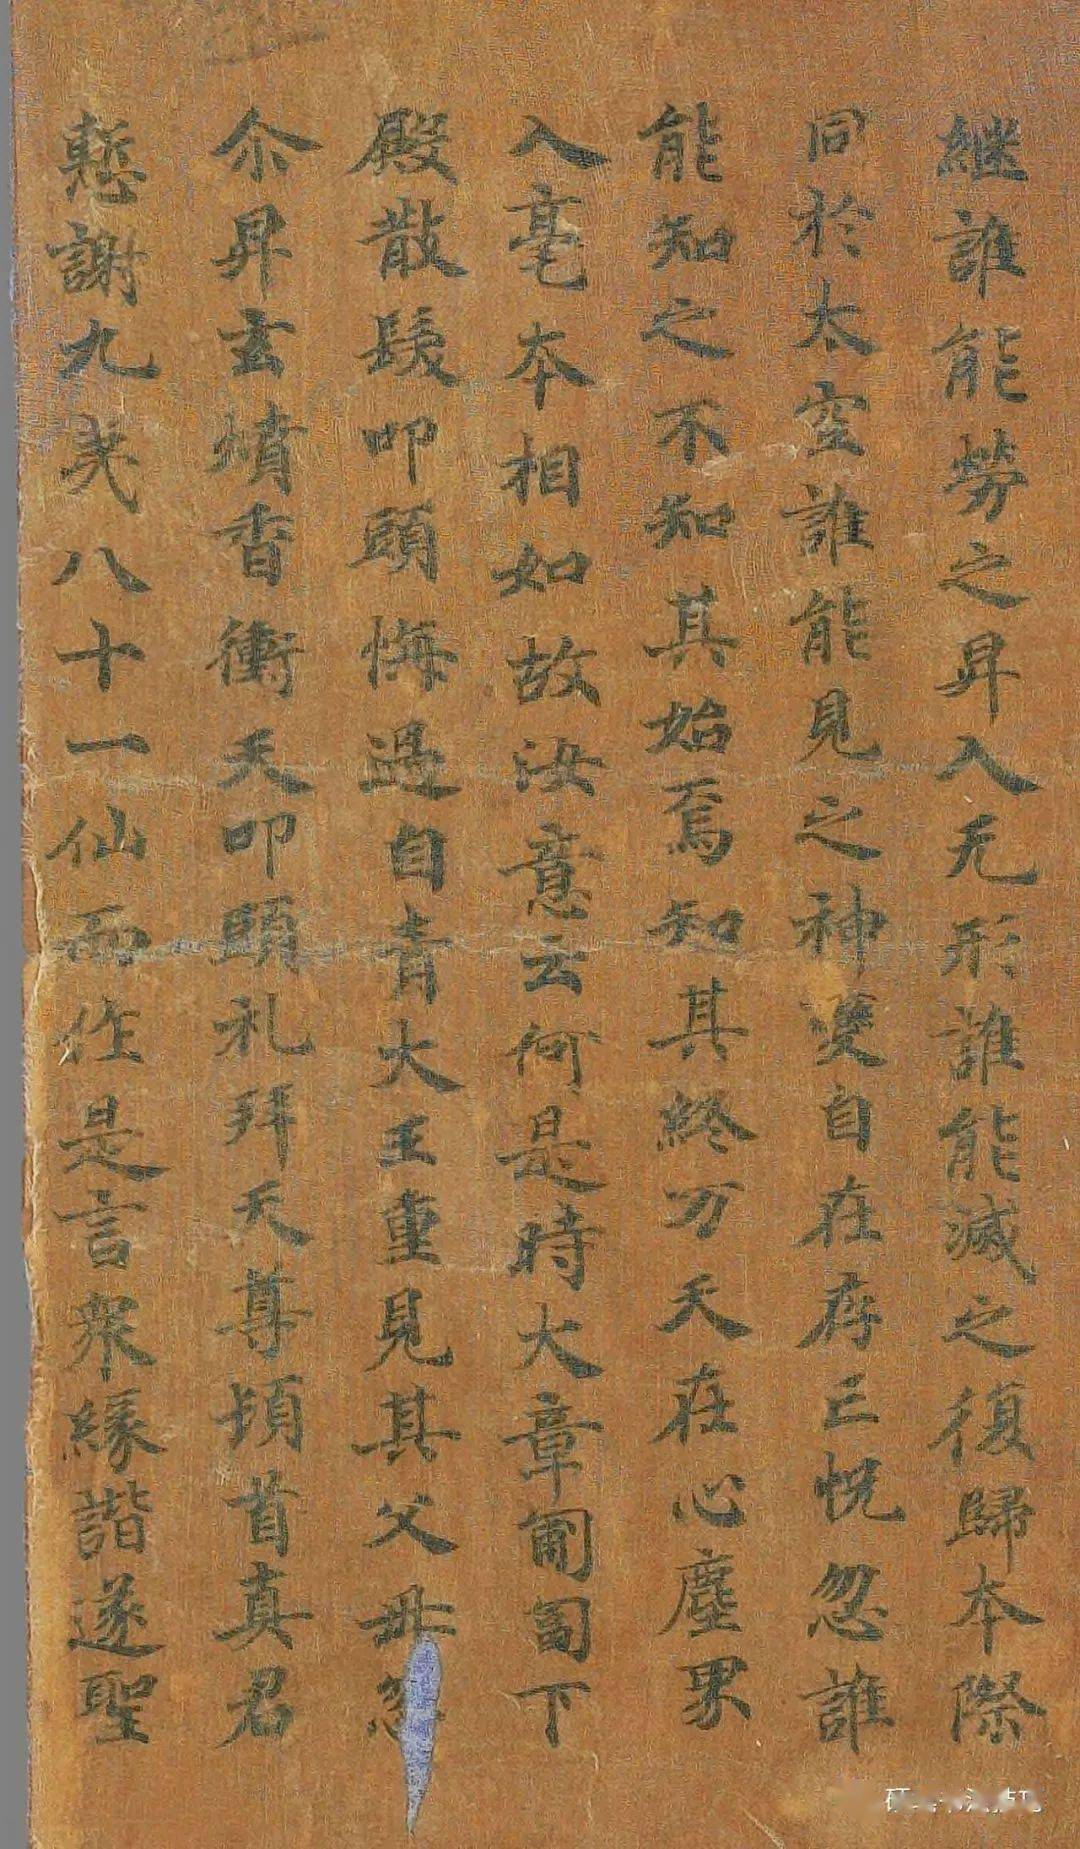 繼誰能勞之昇入无形誰能滅之復歸本際
同於太空誰能見之神變自在存亡怳忽誰
能知之不知其始焉知其終万天在心塵累
入毫本相如故汝意云何是時大章匍匐下
殿散髮叩頭悔過自責大王重見其父母忽
尒昇玄墳香衝天叩頭礼拜天尊頓首真君
慙謝九炁八十一仙而作是言衆緣諧遂聖